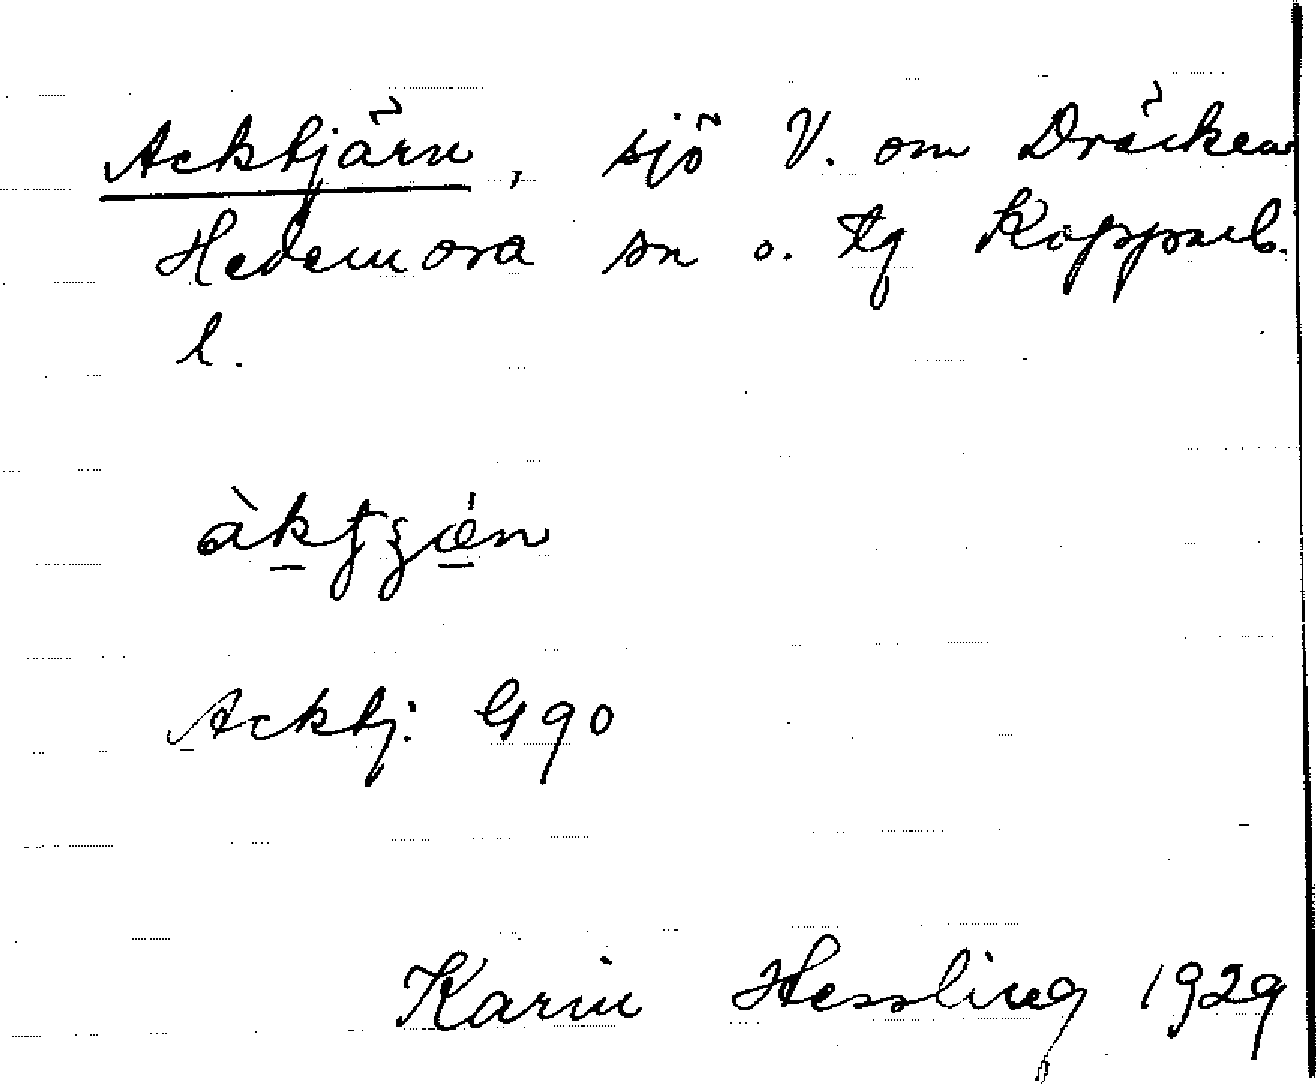 Acktjärn, sjö V. om Dräcken
Hedemora sn o. tg Kopparb.
l.
àktʒǽn
Acktj: G 90
Karin Hessling 1929